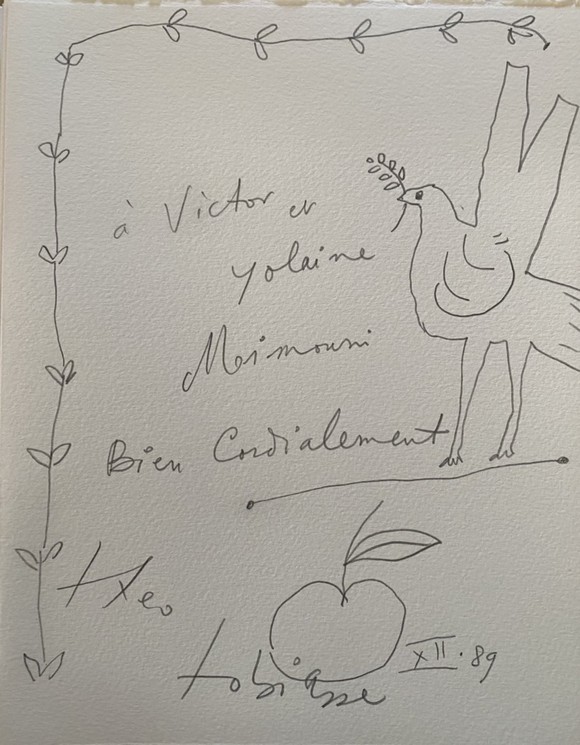 à Victor et
Yolaine
Maimouni
Bien Cordialement
Theo
tobiasse
XII.89